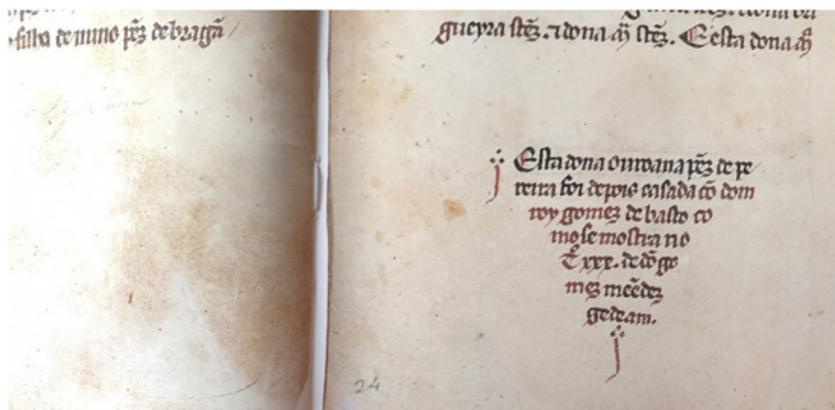 filha de nuno pęz de bragãa /
gueyra stęz. ⁊ dona mͣ stęz. E esta dona mͣ
Esta dona ouroana pęz de pe
reira foi depois casada cõ dom
roy gomez de basto co
mo se mostra no
tͦ xxx. de dõ go
mez mẽdez
gedeam.
24